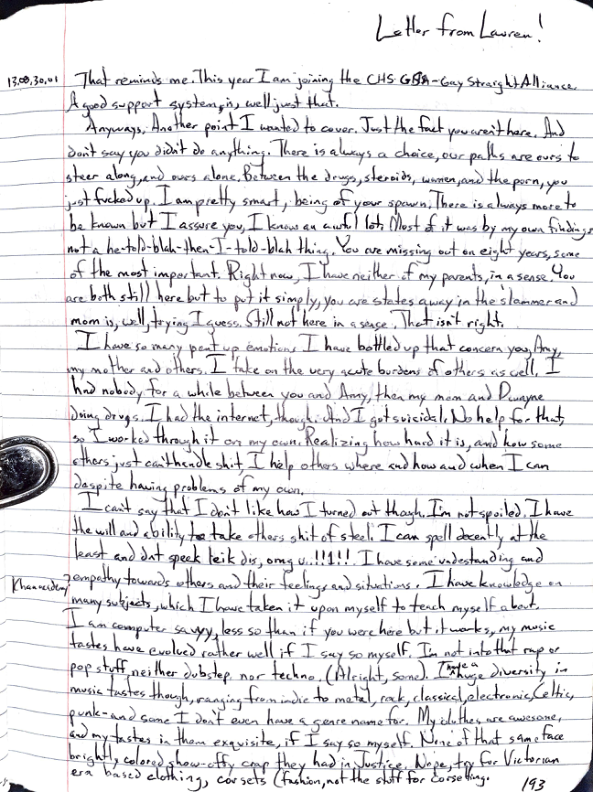 Letter from Lauren!
13,08,30,01 That reminds me. This year I am joining the CHS GSA-Gay Straight Alliance.
A good support system, is, well just that.
Anyways, Another point I wanted to cover. Just the fact you aren't here. And
don't say you didn't do anything. There is always a choice, our paths are ours to
steer along, and ours alone. Between the drugs, steroids, women, and the porn, you
just fucked up. I am pretty smart, being of your spawn. There is always more to
be known but I assure you, I know an awful lot. Most of it was by my own findings
not a he-told-blah-then-I-told-blah thing. You are missing out on eight years, some
of the most important. Right now, I have neither of my parents, in a sense. You
are both still here but to put it simply, you are states away in the slammer and
mom is, well, trying I guess. Still not here in a sense. That isn't right.
I have so many pent up emotions I have bottled up that concern you, Amy,
my mother and others. I take on the very acute burdens of others as well. I
had nobody for a while between you and Amy, then my mom and Dwayne
doing drugs. I had the internet, though. And I got suicidal. No help for that,
so I worked through it on my own. Realizing how hard it is, and how some
others just can't handle shit, I help others where and how and when I can
daspite having problems of my own.
I can't say that I don't like how I turned out though. I'm not spoiled. I have
the will and ability to take others shit of steel. I can spell decently at the
least and dnt speek leik dis, omg u..!!1!!! I have some understanding and
empathy towards others and their feelings and situations. I have knowledge on
Khanacademy many subjects, which I have taken it upon myself to teach myself about.
I am computer savvy, less so than if you were here but it works, my music
tastes have evolved rather well if I say so myself. I'm not into that rap or
pop stuff, neither dubstep nor techno. (Alright, some). I have a huge diversity in
music tastes though, ranging from indie to metal, rock, classical, electronic, Celtic,
punk-and some I don't even have a genre name for. My clothes are awesome,
and my tastes in them exquisite, if I say so myself. None of that same face
brightly colored show-offy crap they had in Justice. Nope, try for Victorian
era based clothing, corsets (fashion, not the stuff for corseting.
193